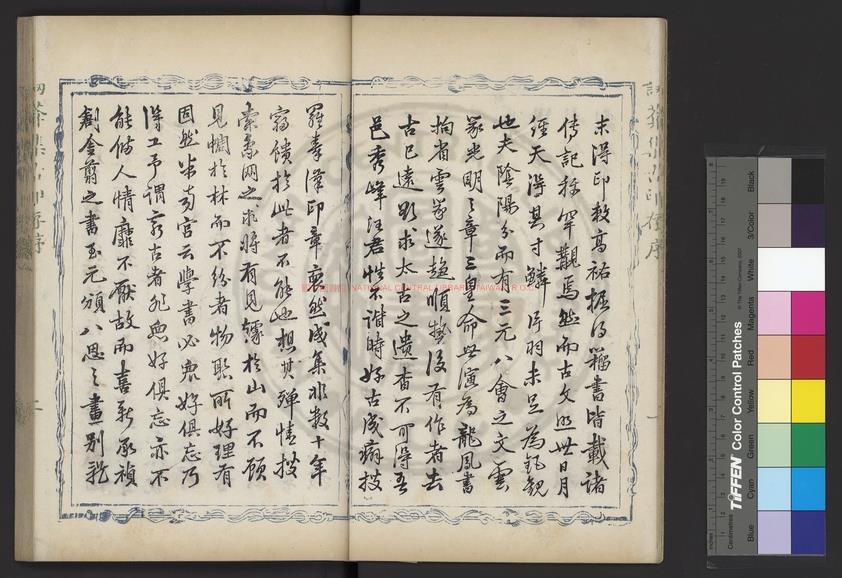 未得印數高祐掘得籀書皆載諸
傳記秘罕觀焉然而古文昭世日月
經天得其寸鱗片羽未足為鉅觀
也夫陰陽分而有三元八會之文雲
篆光明之章三皇命世演為龍鳳書
拘省雲篆遂趨順勢後有作者去
古已遠欲求太古之遺香不可得吾
邑秀峰汪君性不諧時好古成癖搜
羅秦漢印章裒然成集非數十年
窮饋於此者不能也想其殫情搜
索象网之求將有見
於山而不顧
見
於林而不紛者物聚所好理有
固然米南宮云學書必眾好俱忘乃
得工予謂嗜古者非無好俱忘亦不
能備人情靡不厭故而喜新承禎
創金剪之書至元頒八思之畫別
NATIONAL CENTRAL LIBRARY, TAIWAN, R.O.C.
Centimetres
Inches
TIFFEN Color Control Patches
© The Tiffen Company, 2007
Blue
Cyan
Green
Yellow
Red
Magenta
White
3/Color
Black